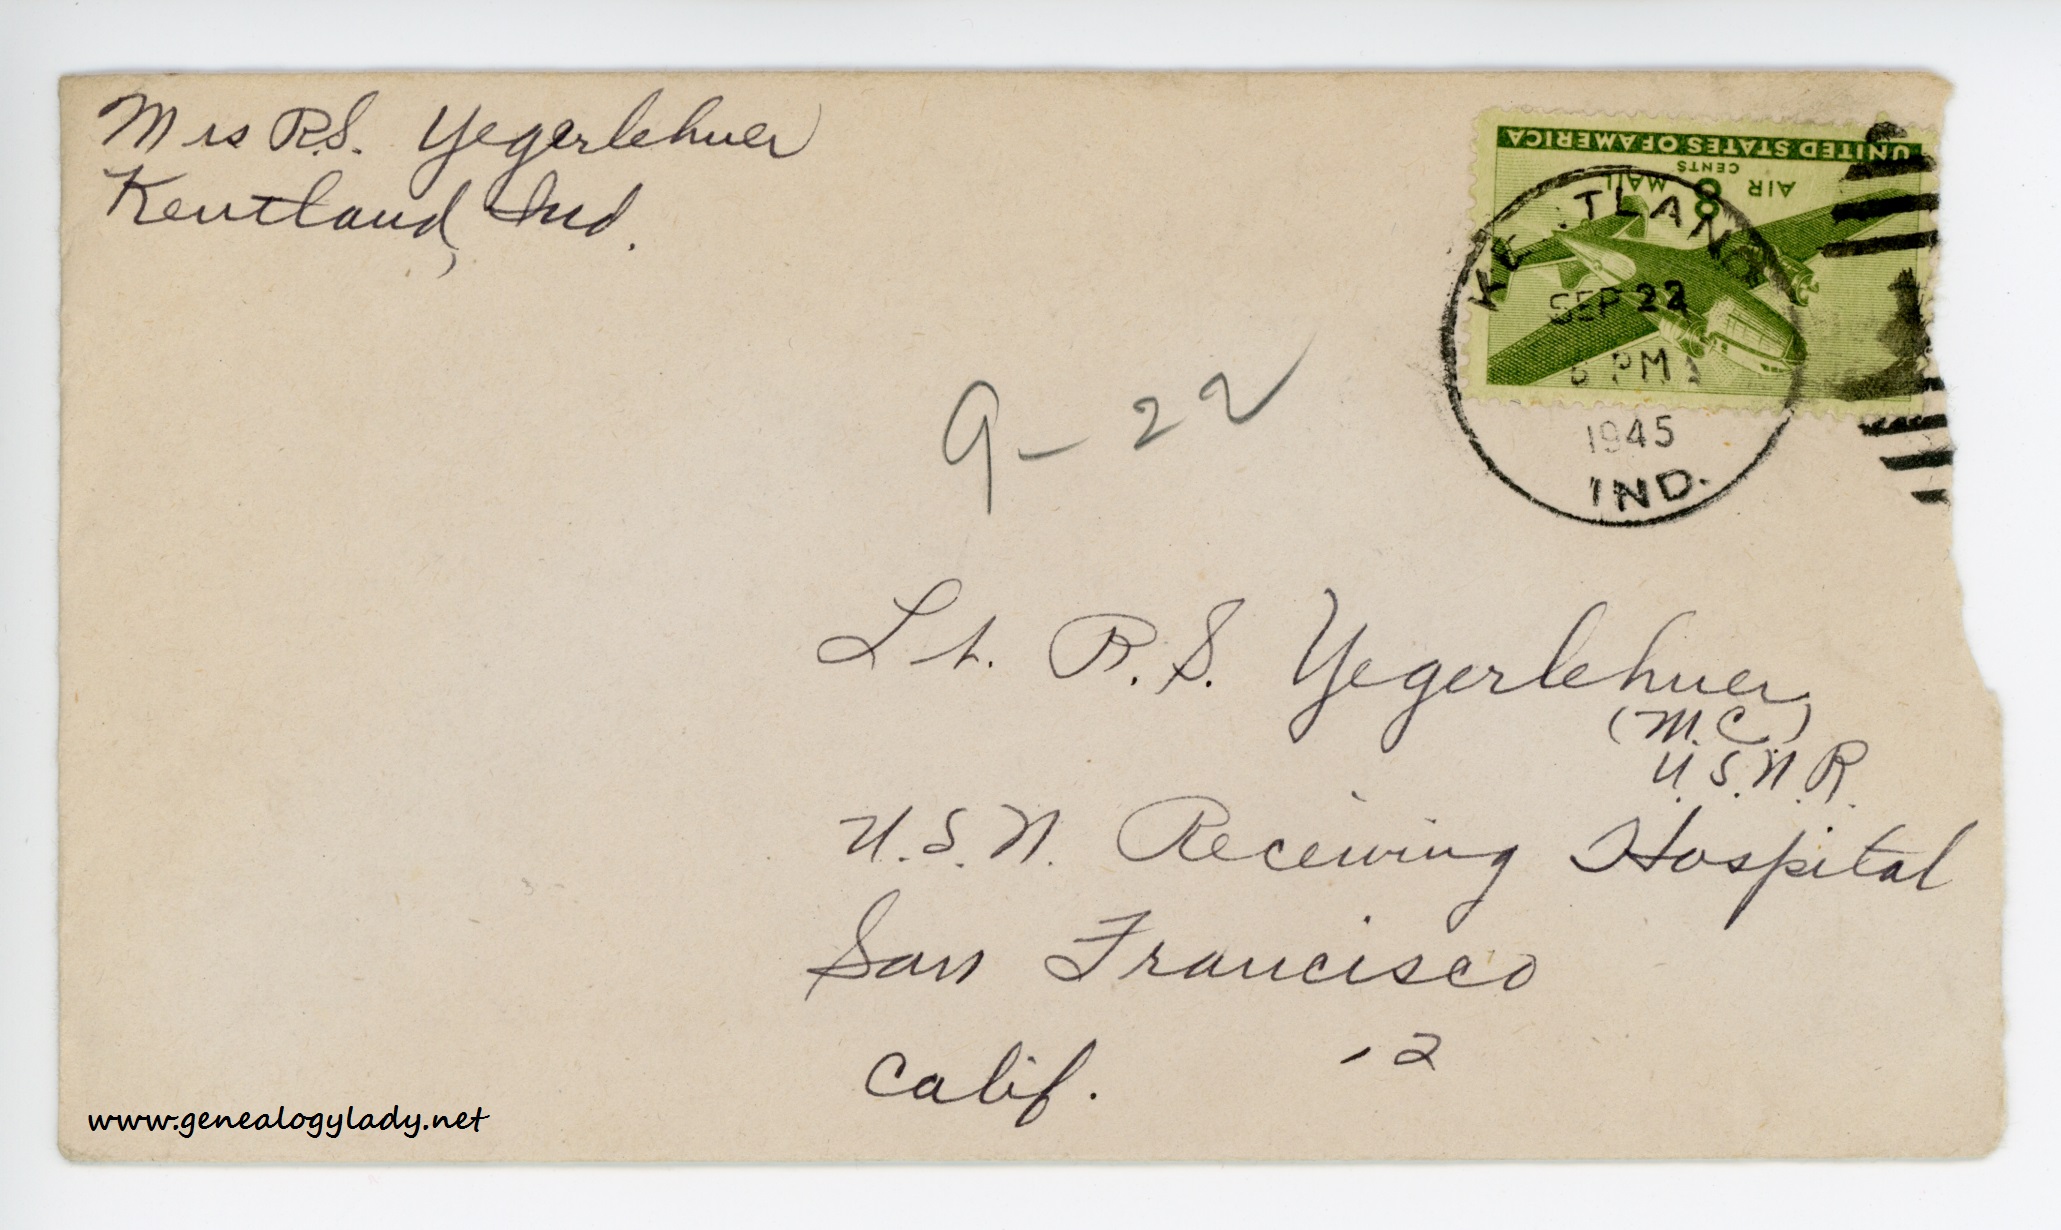 Mrs R.S. Yegerlehner
Kentland, Ind.
UNITED STATES OF AMERICA
CENTS
AIR 8 MAIL
KENTLAND
SEP 22
PM
1945
IND.
9-22
Lt. R.S. Yegerlehner
(M.C.)
U.S.N.R.
U.S.N. Receiving Hospital
San Francisco
-2
Calif.
www.genealogylady.net